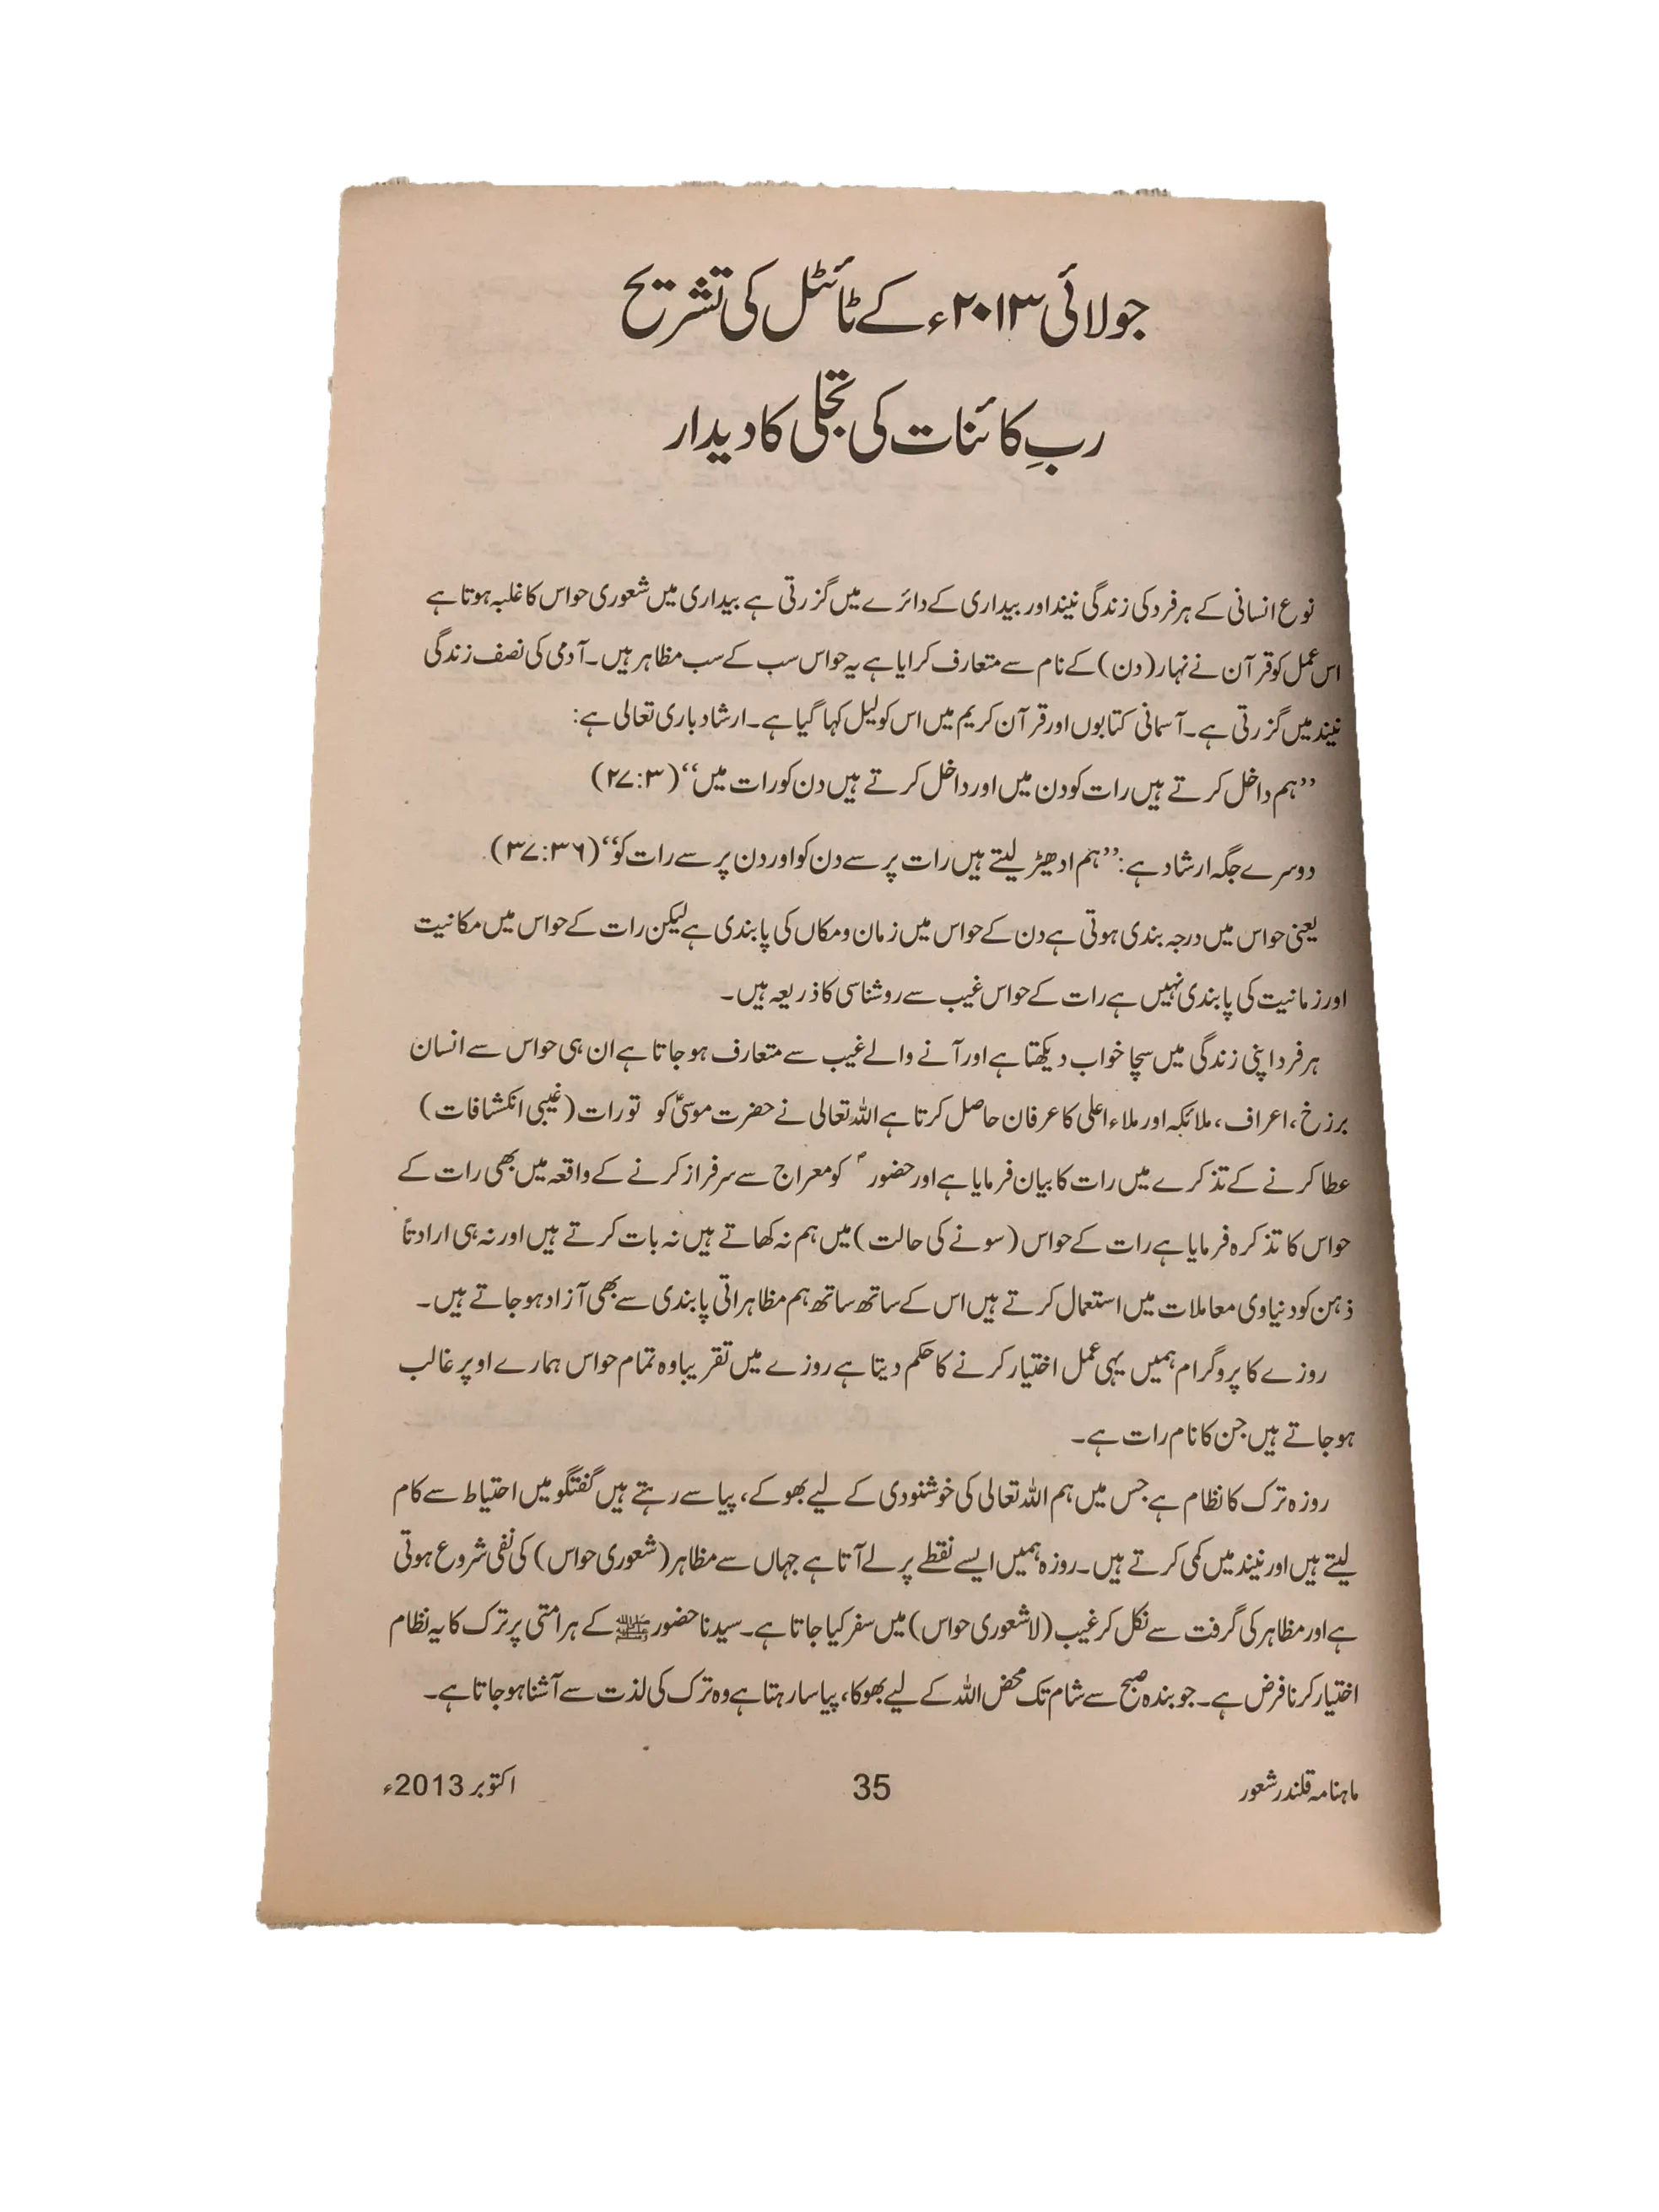 جولائی ۲۰۱۳ء کے ٹائٹل کی تشریح
ربِ کائنات کی تجلی کا دیدار
نوع انسانی کے ہر فرد کی زندگی نیند اور بیداری کے دائرے میں گزرتی ہے بیداری میں شعوری حواس کا غلبہ ہوتا ہے
اس عمل کو قرآن نے نہار (دن) کے نام سے متعارف کرایا ہے یہ حواس سب کے سب مظاہر ہیں۔ آدمی کی نصف زندگی
نیند میں گزرتی ہے۔ آسمانی کتابوں اور قرآن کریم میں اس کو لیل کہا گیا ہے۔ ارشاد باری تعالی ہے:
’’ہم داخل کرتے ہیں رات کو دن میں اور داخل کرتے ہیں دن کو رات میں‘‘ (۲۷:۳)
دوسرے جگہ ارشاد ہے: ’’ہم ادھیڑ لیتے ہیں رات پر سے دن کو اور دن پر سے رات کو‘‘ (۳۷:۳۶)
یعنی حواس میں درجہ بندی ہوتی ہے دن کے حواس میں زمان و مکاں کی پابندی ہے لیکن رات کے حواس میں مکانیت
اور زمانیت کی پابندی نہیں ہے رات کے حواس غیب سے روشناسی کا ذریعہ ہیں۔
ہر فرد اپنی زندگی میں سچا خواب دیکھتا ہے اور آنے والے غیب سے متعارف ہو جاتا ہے ان ہی حواس سے انسان
برزخ، اعراف، ملائکہ اور ملاء اعلی کا عرفان حاصل کرتا ہے اللہ تعالی نے حضرت موسیٰؑ کو تورات (غیبی انکشافات)
عطا کرنے کے تذکرے میں رات کا بیان فرمایا ہے اور حضورؐ کو معراج سے سرفراز کرنے کے واقعہ میں بھی رات کے
حواس کا تذکرہ فرمایا ہے رات کے حواس (سونے کی حالت) میں ہم نہ کھاتے ہیں نہ بات کرتے ہیں اور نہ ہی ارادتاً
ذہن کو دنیاوی معاملات میں استعمال کرتے ہیں اس کے ساتھ ساتھ ہم مظاہراتی پابندی سے بھی آزاد ہو جاتے ہیں۔
روزے کا پروگرام ہمیں یہی عمل اختیار کرنے کا حکم دیتا ہے روزے میں تقریبا وہ تمام حواس ہمارے اوپر غالب
ہو جاتے ہیں جن کا نام رات ہے۔
روزہ ترک کا نظام ہے جس میں ہم اللہ تعالی کی خوشنودی کے لیے بھوکے، پیاسے رہتے ہیں گفتگو میں احتیاط سے کام
لیتے ہیں اور نیند میں کمی کرتے ہیں۔ روزہ ہمیں ایسے نقطے پر لے آتا ہے جہاں سے مظاہر (شعوری حواس) کی نفی شروع ہوتی
ہے اور مظاہر کی گرفت سے نکل کر غیب (لاشعوری حواس) میں سفر کیا جاتا ہے۔ سیدنا حضور ﷺ کے ہر امتی پر ترک کا یہ نظام
اختیار کرنا فرض ہے۔ جو بندہ صبح سے شام تک محض اللہ کے لیے بھوکا، پیاسا رہتا ہے وہ ترک کی لذت سے آشنا ہو جاتا ہے۔
ماہنامہ قلندر شعور 35 اکتوبر 2013ء